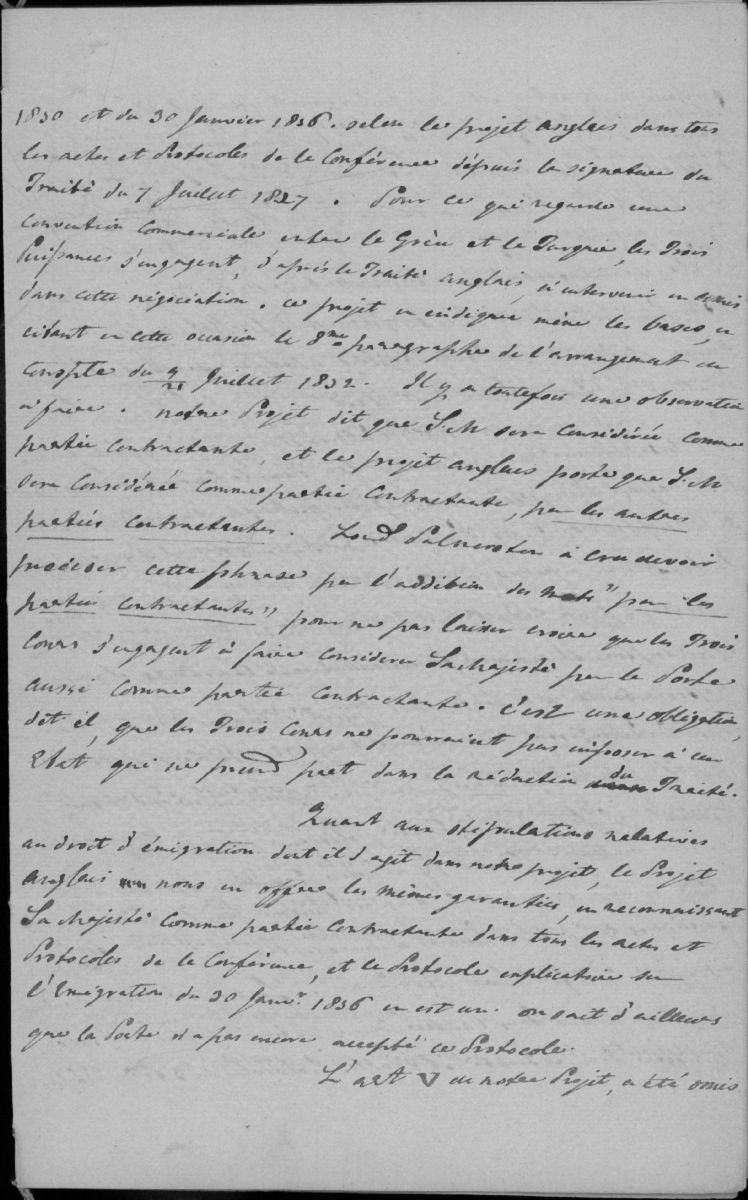 1830 et du 30 Janvier 1836. selon le projet anglais dans tous
les actes et Protocoles de la Conférence dépuis la signature du
Traité du 7 Juillet 1827. Pour ce qui regarde une
Convention Commerciale entre la Grèce et la Turquie, les Trois
Puissances s'engagent, d'après le Traité anglais, à intervenir en amis
dans cette négociation. ce projet en indique même les bases, en
citant en cette occasion le 8me paragraphe de l'arrangement de
Consple du 9/21 Juillet 1832. Il y a toutefois une observation
à faire. notre Projet dit que S.M sera considérée comme
partie contractante, et le projet anglais porte que S.M
sera considérée comme partie contractante, par les autres
parties contractantes. Lord Palmerston a cru devoir
préciser cette phrase par l'addition des mots "par les
parties contractantes" pour ne pas laisser croire que les Trois
Cours s'engagent à faire considerer Sa Majesté par la Porte
aussi comme partie contractante. C'est une obligation,
dit il, que les Trois Cours ne pourraient pas imposer à un
Etat qui ne prend part dans la rédaction du Traité.
Quant aux stipulations relatives
au droit d'émigration dont il s'agit dans notre projet, le Projet
anglais nous en offre les mêmes garanties, en reconnaissant
Sa Majesté comme partie contractante dans tous les actes et
Protocoles de la Conférence, et le Protocole explicative sur
l'Emigration du 30 Janvr. 1836 en est un. on sait d'ailleurs
que la Porte n'a pas encore accepté ce Protocole.
L'art V de notre Projet, a été omis